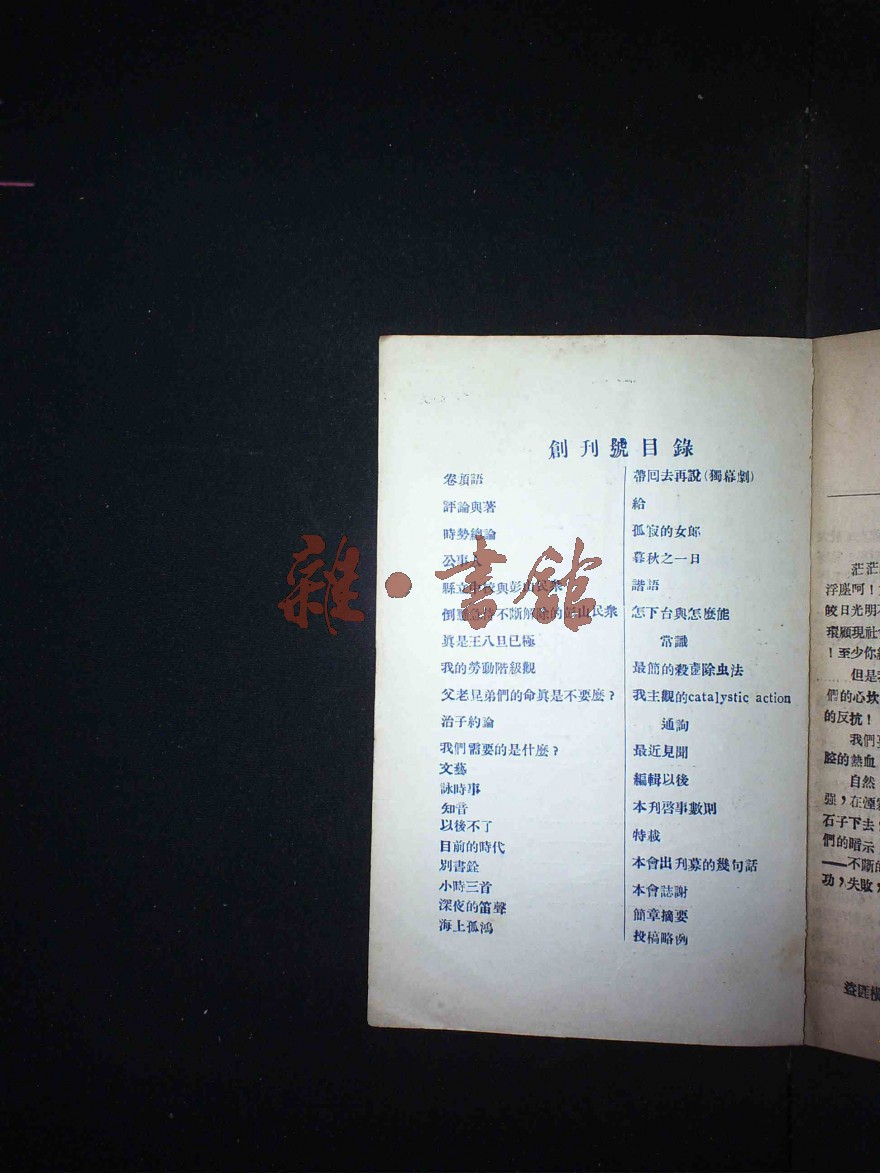 創刊號目錄
卷頭語
評論與著
時勢總論
公事人
縣立中校與彭山民衆
倒懸急待不斷解除的彭山民衆
眞是王八旦已極
我的勞動階級觀
父老兄弟們的命眞是不要麽？
治子約論
我們需要的是什麽？
文藝
詠時事
知音
以後不了
目前的時代
別書銓
小時三首
深夜的笛聲
海上孤鴻
帶回去再說(獨幕劇)
給
孤寂的女郎
暮秋之一日
諧語
怎下台與怎麽能
常識
最簡的殺菌除虫法
我主觀的catalystic action
通詢
最近見聞
編輯以後
本刊啓事數則
特載
本會出刊募的幾句話
本會誌謝
簡章摘要
投稿略
茫茫
浮塵呵！
皎日光明不
環顧現社
！至少你
但是
們的心坎
的反抗！
我們
腔的熱血
自然
強，在
石子下去
們的暗示
——不斷的
功，失敗，
雜·書館